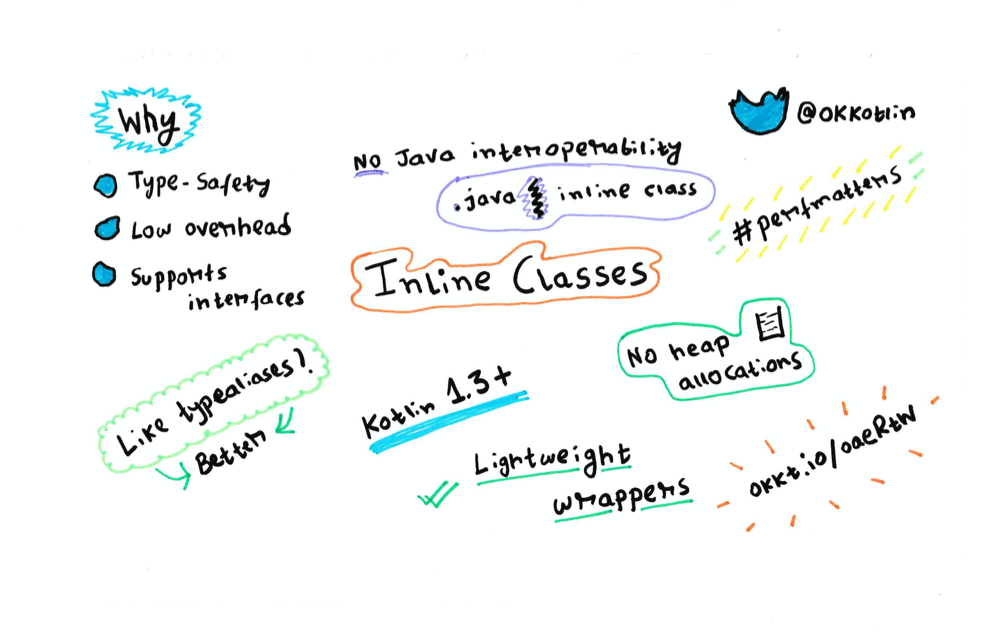 Why
Type-Safety
Low overhead
Supports
interfaces
NO Java interoperability
.java inline class
@OKKotlin
#perfmatters
Inline Classes
No heap
allocations
Like typealiases?
Better
Kotlin 1.3+
Lightweight
wrappers
okkt.io/oaeRtW